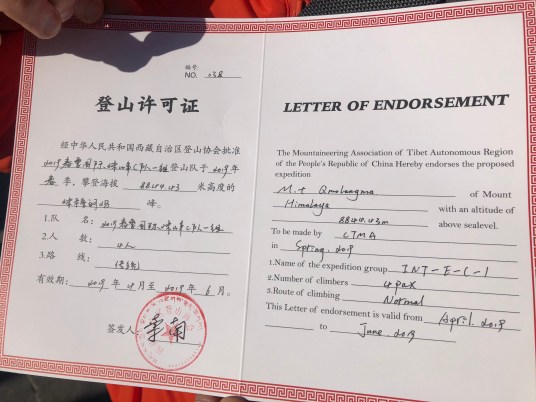 编号
NO. 038
登山许可证
经中华人民共和国西藏自治区登山协会批准
2019春雪国际 队一组登山队于2019年
春季,攀登海拔 8844.43 米高度的
珠穆朗玛 峰。
1.队 名:2019春雪国际 队一组
2.人 数:4人
3.路 线:传统
有效期:2019年4月至2019年6月。
签发人:
LETTER OF ENDORSEMENT
The Mountaineering Association of Tibet Autonomous Region
of the People's Republic of China Hereby endorses the proposed
expedition
M.t Qmolangma of Mount
Himalaya with an altitude of
8844.43m above sealevel.
To be made by CTMA
in Spring. 2019
1.Name of the expedition group INT-E-C-1
2.Number of climbers 4pax
3.Route of climbing Normal
This Letter of endorsement is valid from April. 2019
to June. 2019